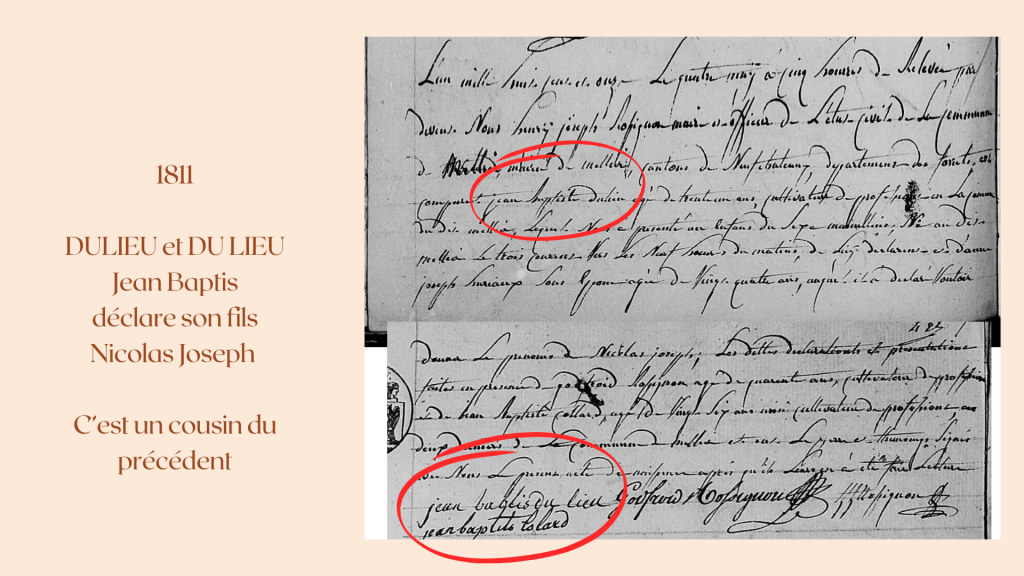 1811
DULIEU et DU LIEU
Jean Baptis
déclare son fils
Nicolas Joseph
C'est un cousin du
précédent
L'an mille huit cent et onze Le quatre may à cinq heures de Relevée par
devant Nous henry joseph Rossignon maire et officier de L'état civil de La Commune
de mellier, maire de mellier, cantons de Neufchateau, département des forets, est
comparut jean Baptiste dulieu age de trente un ans, cultivateur de profession en La
du dit mellier, Lequel Nous a présenté un enfant du Sexe masculin, Né au dit
mellier Le trois courrant Vers Les Neuf heures du matin, de Luy déclarant et de
joseph Sous Epouse agée de Vingt quatre ans, auquel il a déclaré Vouloir
487
donner Le prenoms de Nicolas joseph; Les dittes declarations et presentations
faites en presence de godfroid Rossignon agé de quarente ans, cultivateur de profession
et de jean Baptiste Collard, agé de Vingt Six ans aussi cultivateur de profession, au
deux de La Commune de mellier et ont Le pere et temoings Signés
avec Nous Le present acte de naissance après qu'il Leur en à été fait Lecture
jean baptis du lieu Godfroid Rossignon HJRossignon
jean baptiste Colard